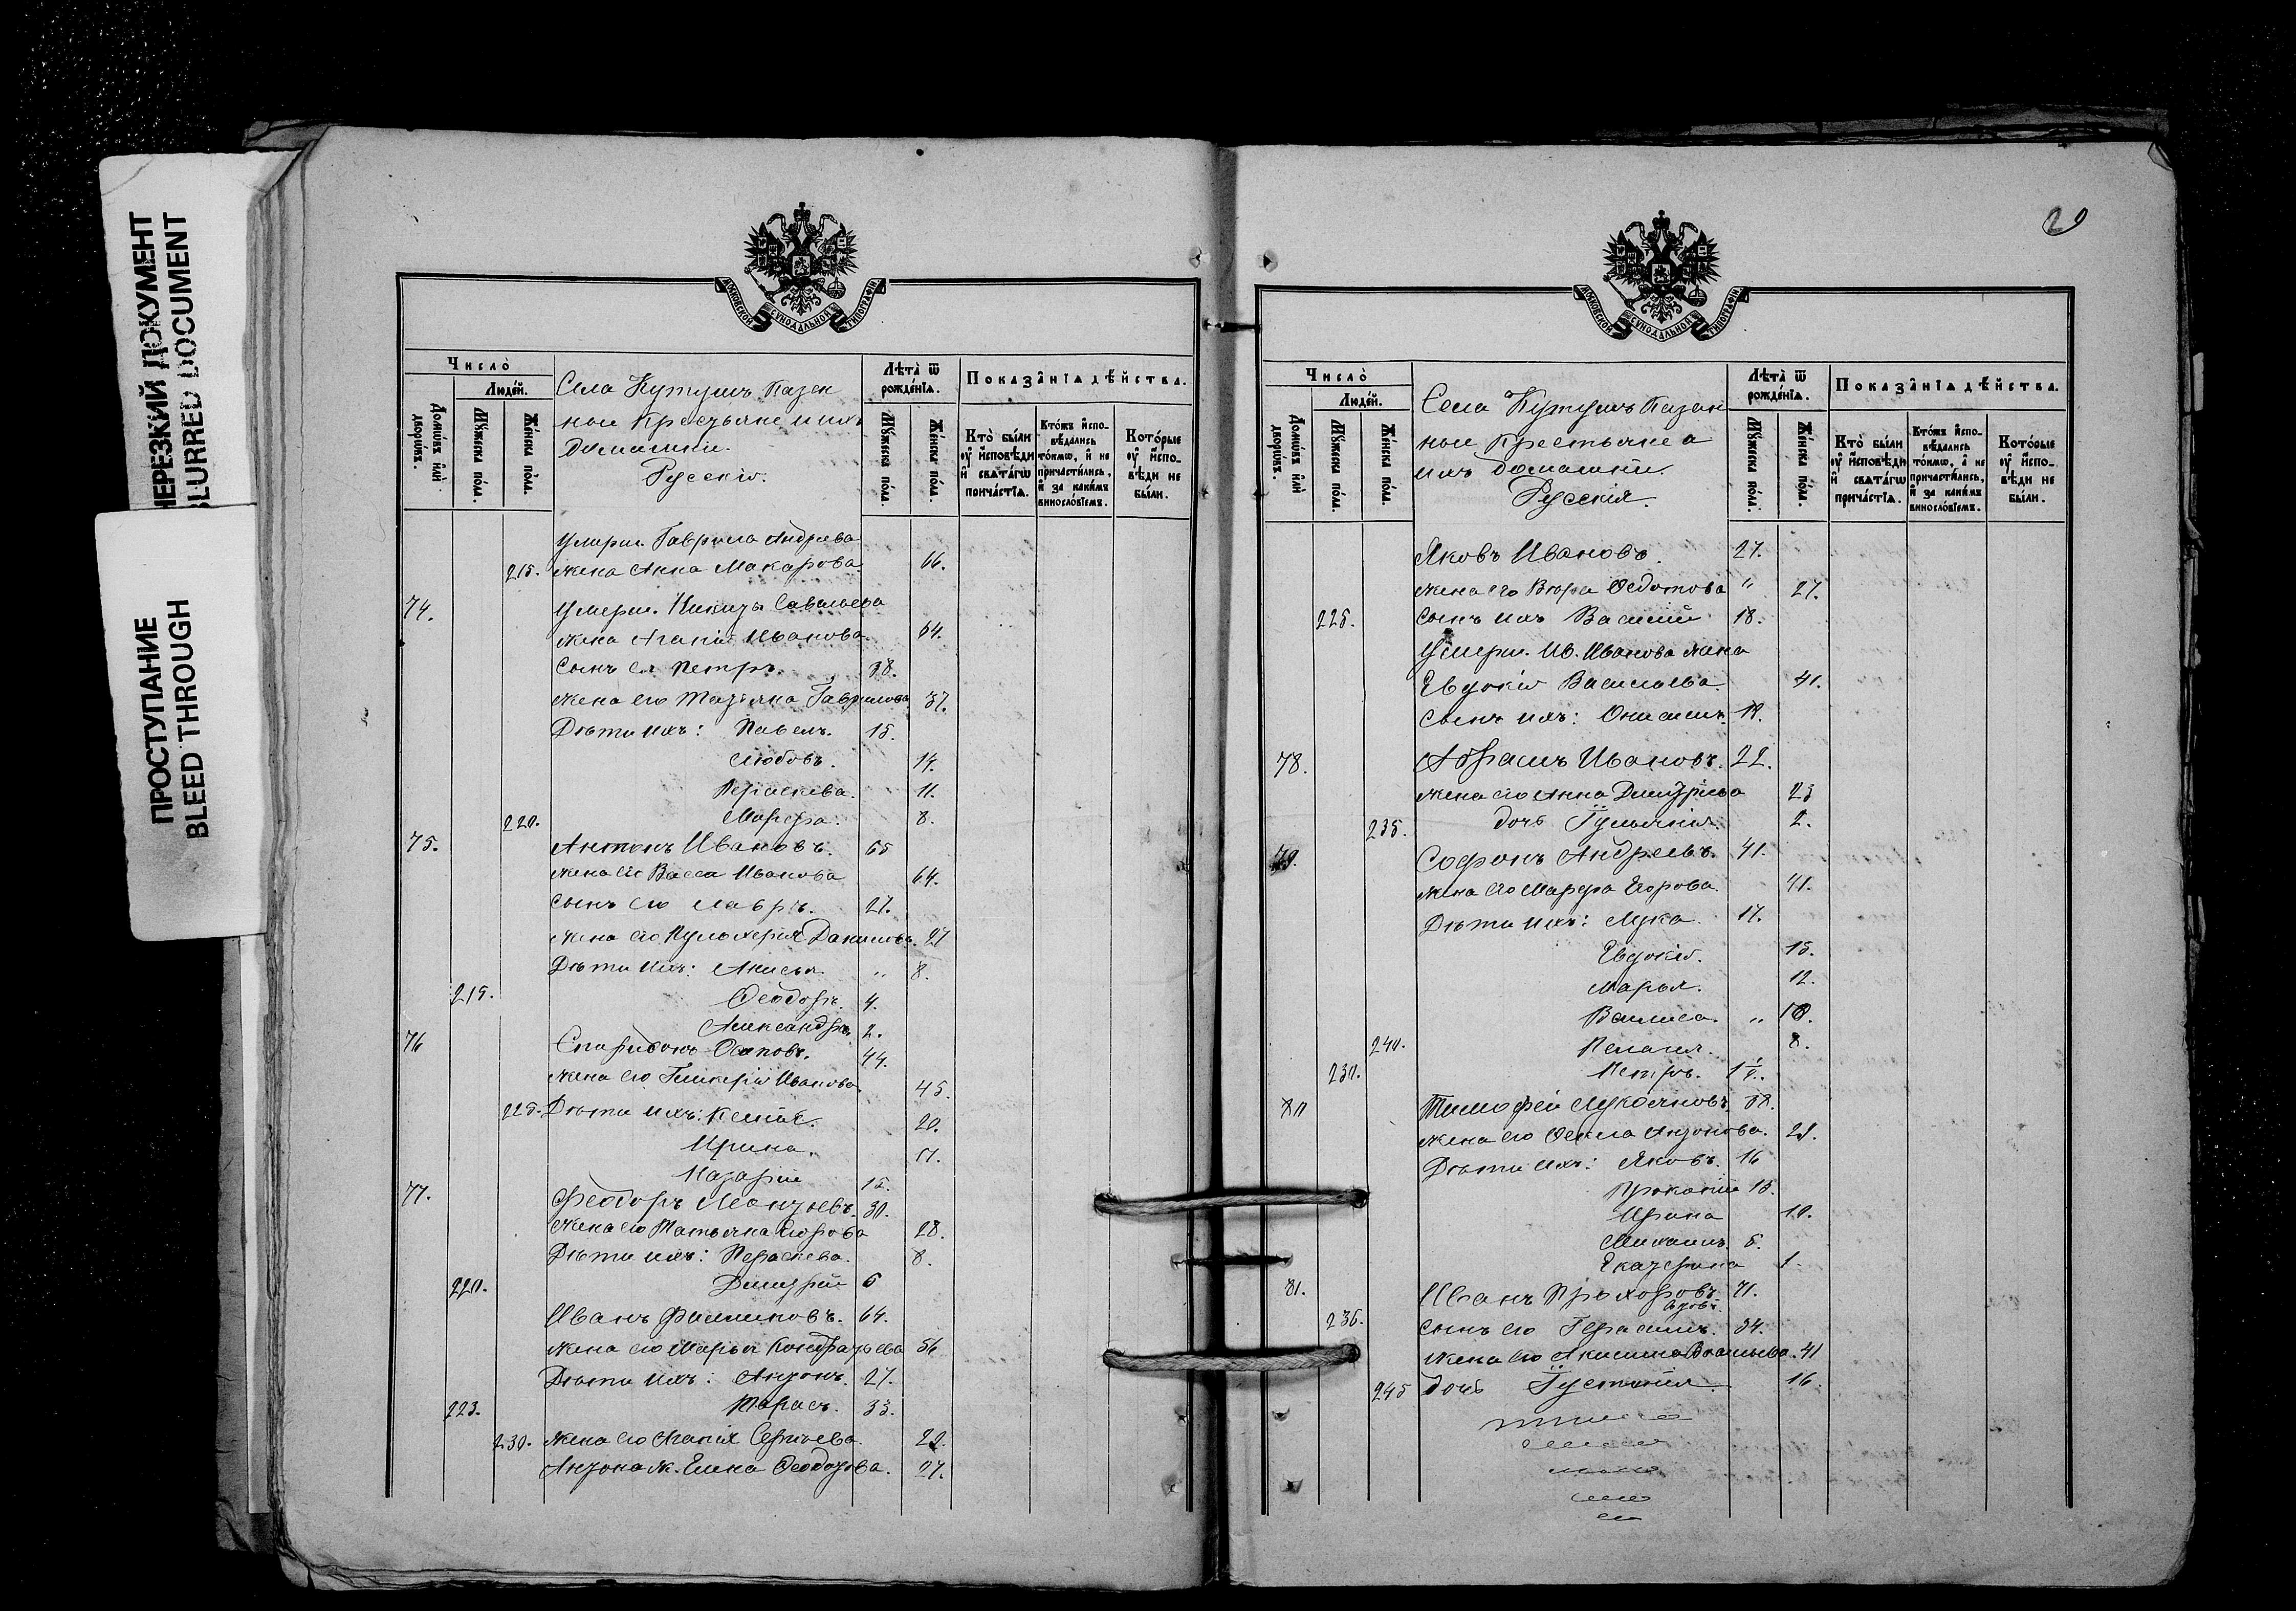 НЕРЕЗКИЙ ДОКУМЕНТ
BLURRED DOCUMENT
ПРОСТУПАНИЕ
BLEED THROUGH
МОСКОВСКОЙ СѴНОДАЛЬНОЙ ТИПОГРАФІИ
Число̀
Люде́й.
Домѡ́въ и҆лѝ дворѡ́въ.
Мꙋ́жеска по́ла.
Же́нска по́ла.
Села Кутушъ Казен
ные Крестьяне и ихъ
Домашніи.
Русскіе.
Лѣ́та ѿ рожде́нїѧ.
Мꙋ́жеска по́ла.
Же́нска по́ла.
Показа̑нїѧ дѣ́йства.
Кто̀ бы́ли оу҆ и҆спо́вѣди и҆ свѧта́гѡ прича́стїѧ.
Кто́жъ и҆спо-вѣ́дались то́кмѡ, и҆ не причасти́лись, и҆ за каки́мъ виносло́вїемъ.
Кото́рые оу҆ и҆спо-вѣди не бы́ли.
умерш. Гаврила Андреева
215. жена Анна Макарова. 66.
74. умерш. Никиты Савельева
жена Агапія Иванова. 64.
Сынъ ея Петръ. 38.
жена его Татіяна Гаврилова 37.
Дѣти ихъ: Павелъ. 15.
Любовь. 14.
Параскева. 11.
220. Марфа. 8.
75. Антонъ Ивановъ. 65
жена его Васса Иванова 64.
Сынъ его Лавръ. 27.
жена его Пульхерія Данилова. 27
Дѣти ихъ: Анисья. " 8.
219. Ѳеодоръ. 4.
Александръ. 2.
76 Спиридонъ Осиповъ. 44.
жена его Гликерія Иванова. 45.
225. Дѣти ихъ: 20.
Ирина. 17.
Назарій 15.
77. Феодоръ Леонтьевъ. 30.
жена его Татьяна Егорова 28.
Дѣти ихъ: Параскева. 8.
220. Димитрій 6
Иванъ Филиповъ. 64.
жена его Марья Кондратьева 56
Дѣти ихъ: Антонъ. 27.
223. Тарасъ. 33.
230. жена его Агапія Сергѣева. 22.
Антона ж. Елена Ѳеодотова. 27.
29
МОСКОВСКОЙ СѴНОДАЛЬНОЙ ТИПОГРАФІИ
Число̀
Люде́й.
Домѡ́въ и҆лѝ дворѡ́въ.
Мꙋ́жеска по́ла.
Же́нска по́ла.
Села Кутушъ Казен
ные Крестьяне и
ихъ домашніи.
Русскія.
Лѣ́та ѿ рожде́нїѧ.
Мꙋ́жеска по́ла.
Же́нска по́ла.
Показа̑нїѧ дѣ́йства.
Кто̀ бы́ли оу҆ и҆спо́вѣди и҆ свѧта́гѡ прича́стїѧ.
Кто́жъ и҆спо-вѣ́дались то́кмѡ, и҆ не причасти́лись, и҆ за каки́мъ виносло́вїемъ.
Кото́рые оу҆ и҆спо-вѣди не бы́ли.
Яковъ Ивановъ. 27.
жена его Вѣра Ѳедотова " 27.
225. Сынъ ихъ Василій 18.
Умерш. Ив. Иванова жена
Евдокія Васильева. 41.
Сынъ ихъ: Онисимъ. 19.
78. Абрамъ Ивановъ. 22.
жена его Анна Димитріева 23
235. дочь Іуліанія. 2.
79. Софонъ Андреевъ. 41.
жена его Марфа Егорова. 41.
Дѣти ихъ: Лука. 17.
Евдокія. 15.
Марья. 12.
Василиса. " 10.
240. Пелагия. 8.
230. Петръ. 1
80 Тимофей Лукояновъ. 38.
жена его Ѳекла Антонова.
Дѣти ихъ: Яковъ. 16
Прокопій 15.
Ирина 10.
Михаилъ. 5.
Екатерина 1.
81. Иванъ Прохоровъ. 71.
вдовъ.
235. сынъ его Герасимъ. 34.
жена его Акилина Васильева. 41
245 дочь Іустинія. 16.